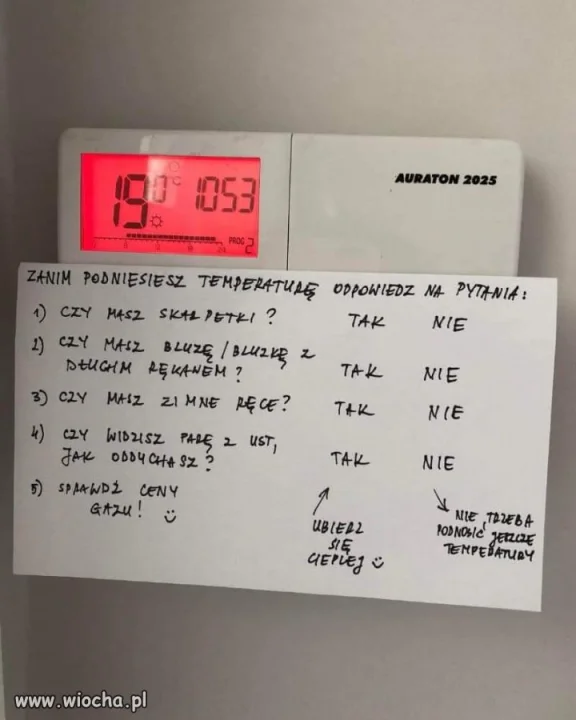 AURATON 2025
19.0°C 1053
PROG 2
ZANIM PODNIESIESZ TEMPERATURĘ ODPOWIEDZ NA PYTANIA:
1) CZY MASZ SKARPETKI? TAK NIE
2) CZY MASZ BLUZĘ/BLUZKĘ Z
DŁUGIM RĘKAWEM? TAK NIE
3) CZY MASZ ZIMNE RĘCE? TAK NIE
4) CZY WIDZISZ PARĘ Z UST,
JAK ODDYCHASZ? TAK NIE
5) SPRAWDŹ CENY
GAZU!
UBIERZ
SIĘ
CIEPLEJ
NIE TRZEBA
PODNOSIĆ JESZCZE
TEMPERATURY
www.wiocha.pl